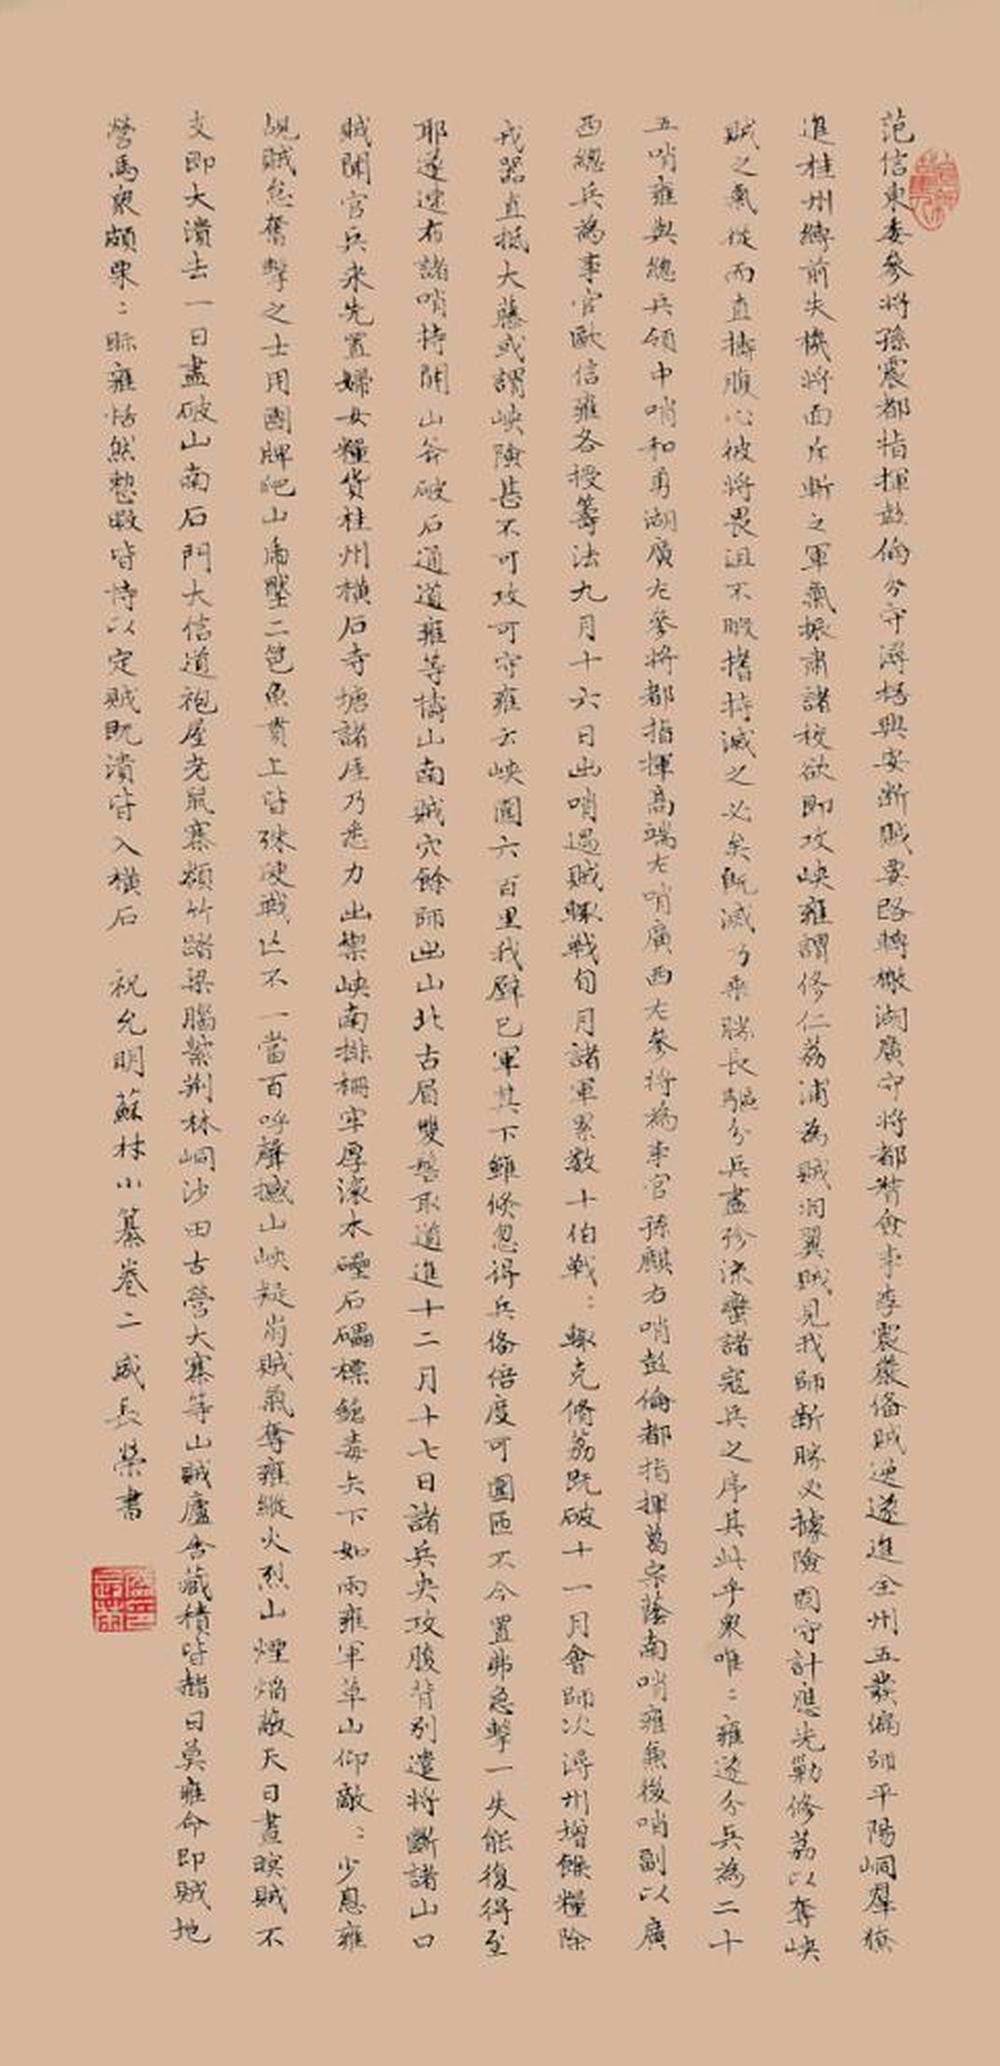 范信東委參將孫震都指揮彭倫分守潯梧與安斷賊要路轉檄湖廣守將都僉事李震嚴俻賊逆遂進全州五發偏師平陽峒群猺
進桂州縛前失機將面斥斬之軍氣振肅諸校欲即攻峽雍謂修仁荔浦為賊洞翼賊見我師新勝必據險固守計應先勦修荔以奪峽
賊之氣從而直擣腹心彼將畏沮不暇撐持滅之必矣既滅乃乘勝長驅分兵盡殄流蠻諸寇兵之序其此乎衆唯〻雍遂分兵為二十
五哨雍與總兵領中哨和勇湖廣左參將都指揮高端左哨廣西左參將為事官孫麒右哨彭倫都指揮葛宗蔭南哨雍焦後哨副以廣
西總兵為事官歐信雍各授籌法九月十六日出哨過賊輙戰旬月諸軍累數十伯戰〻輙克脩荔既破十一月會師次潯州增餱糧除
戎器直抵大藤或謂峽險甚不可攻可守雍云峽圍六百里我歷已軍其下雖倏忽得兵俻倍度可圍匝不今置弗急擊一失能復得至
耶遂速布諸哨持開山斧破石通道雍等擣山南賊穴餘師出山北古眉雙髻取道進十二月十七日諸兵夾攻腹背別遣將斷諸山口
賊聞官兵來先置婦女糧貨桂州橫石寺塘諸厓乃悉力出禦峽南排柵牢厚滾木礧石礌標鎗毒矢下如雨雍軍草山仰敵〻少息雍
覘賊怠奮擊之士用團牌爬山虎壓二笆魚貫上皆殊硬戰亡不一當百呼聲撼山峽疑崩賊氣奪雍縱火烈山煙焰蔽天日晝暝賊不
支即大潰去一日盡破山南石門大信道袍屋老鼠寨額竹踏梁腦紫荆林峒沙田古營大寨等山賊廬舍藏積皆赭日奠雍命即賊地
營馬衆頗栗〻眎雍恬然憩暇皆恃以定賊既潰皆入橫石　祝允明蘇材小纂卷二　戚長榮書